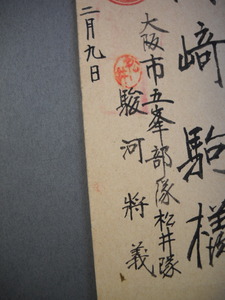 崎駒様
大阪市五峯部隊松井隊
駿河将義
二月九日